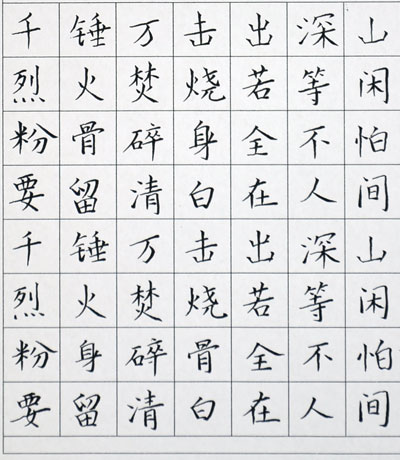 千锤万击出深山
烈火焚烧若等闲
粉骨碎身全不怕
要留清白在人间
千锤万击出深山
烈火焚烧若等闲
粉身碎骨全不怕
要留清白在人间